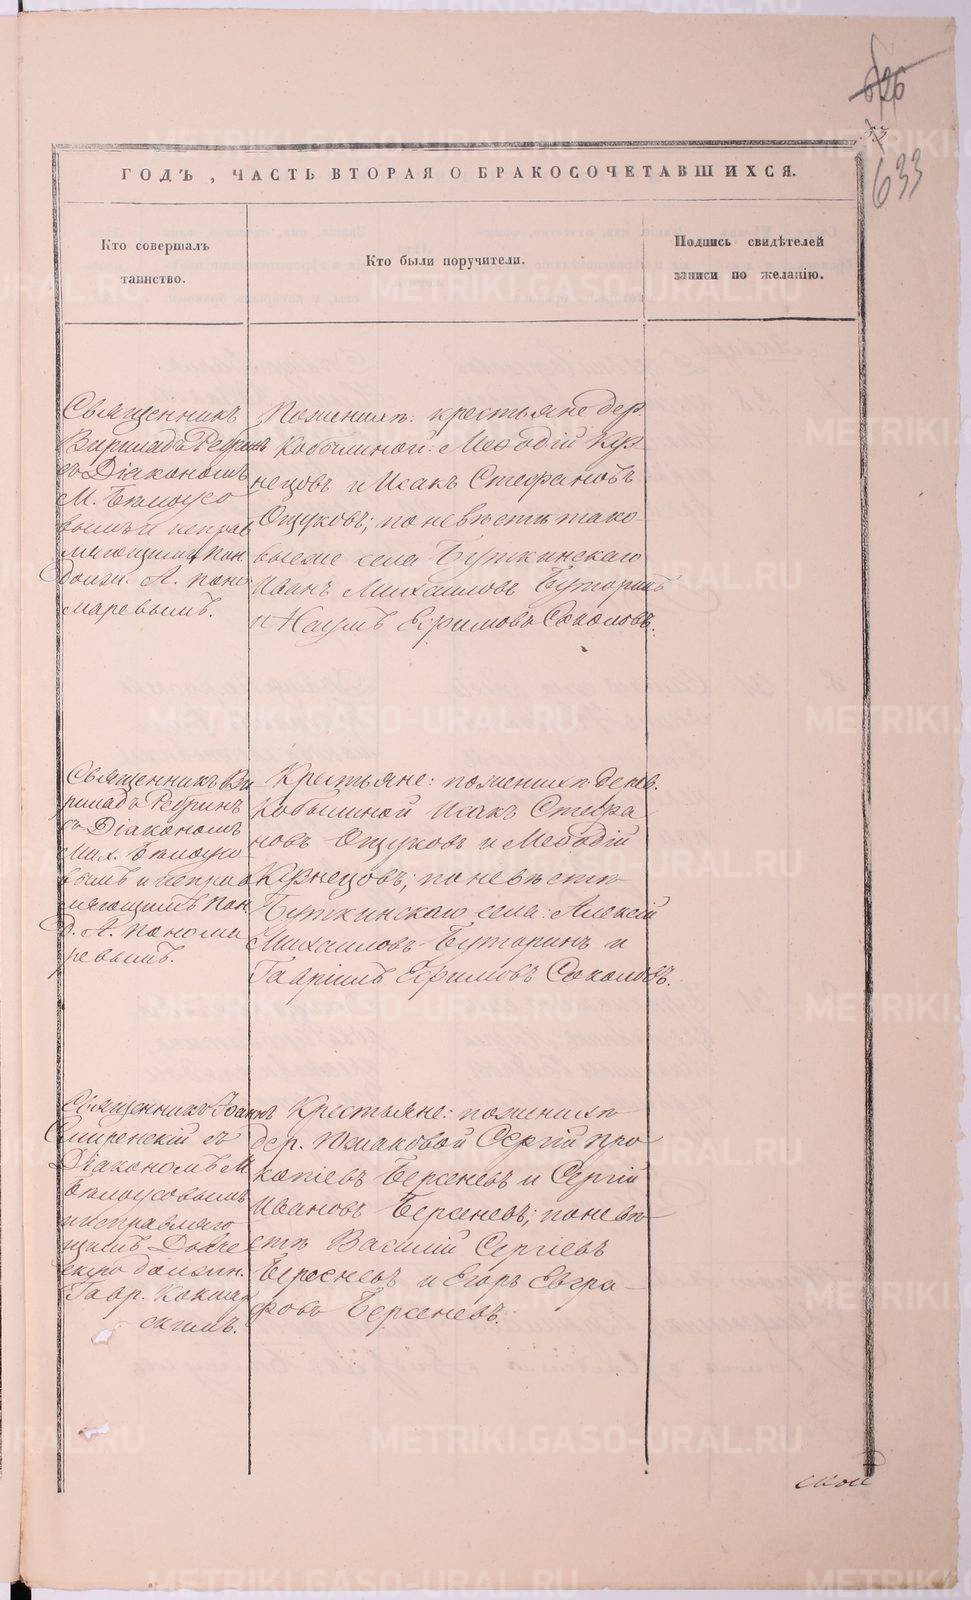 626
633
ГОДЪ, ЧАСТЬ ВТОРАЯ О БРАКОСОЧЕТАВШИХСЯ.
Кто совершалъ
таинство.
Кто были поручители.
Подпись свидѣтелей
записи по желанію.
Священникъ
съ Діакономъ
М. Бѣлоусо
вымъ и исправ
ляющимъ пон.
должн. А. Поно
маревымъ.
По женихѣ: крестьяне дер.
Кобылиной: Меѳодій Куз
нецовъ и Исакъ Стефановъ
Ощуковъ; по невѣстѣ тако
выеже села Буткинскаго
Иванъ Михаиловъ Буторинъ
и Наумъ Ефимовъ Соколовъ.
Священникъ Ви
съ Діакономъ
Мих. Бѣлоусо
вымъ и исправ
ляющимъ пон.
д. А. Понома
ревымъ.
Крестьяне: по женихѣ дерев.
Кобылиной Исакъ Стефа
новъ Ощуковъ и Меѳодій
Кузнецовъ; по невѣстѣ
Буткинскаго села: Алексій
Михаиловъ Буторинъ и
Гавріилъ Ефимовъ Соколовъ.
Священникъ Іоаннъ
Смиренскій съ
Діакономъ М.
Бѣлоусовымъ
и исправляю
щимъ Дьяче
скую должн.
Гавр. Кокшар
скимъ.
Крестьяне: по женихѣ
дер. Сергій Про
копіевъ Берсеневъ и Сергій
Ивановъ Берсеневъ; по невѣ
стѣ Василій Сергіевъ
Берсеневъ и Егоръ Евгра
фовъ Берсеневъ.
METRIKI.GASO-URAL.RU